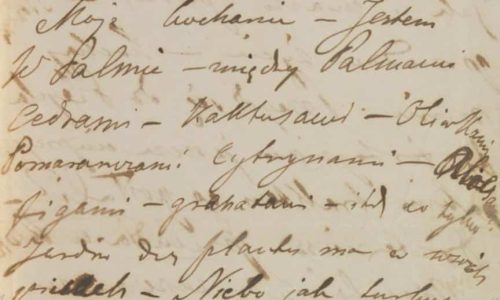 Moje Kochanie – Jestem
W Palmie – między Palmami
Cedrami – Kaktusami – Oliwkami
Pomarańczami Cytrynami – Aloesami
– figami – granatami – itd co tylko
Jardin des plantes ma w swoich
piecach – Niebo jak turk